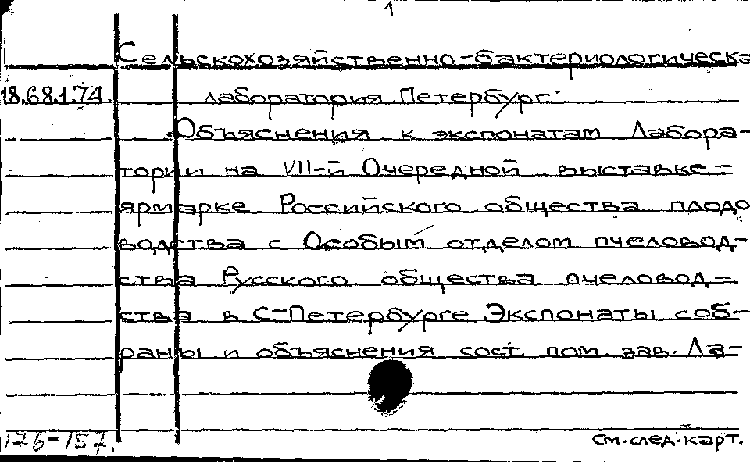 1
Сельскохозяйственно-бактериологическа
18.68.1.74. лаборатория Петербург.
Объяснения к экспонатам Лабора-
тории на VII-й Очередной выставке-
ярмарке Российского общества плодо
водства с Особым отделом пчеловод-
ства Русского общества пчеловод-
ства в С-Петербурге Экспонаты соб-
раны и объяснения сост. пом. зав. Ла-
см. след. карт.